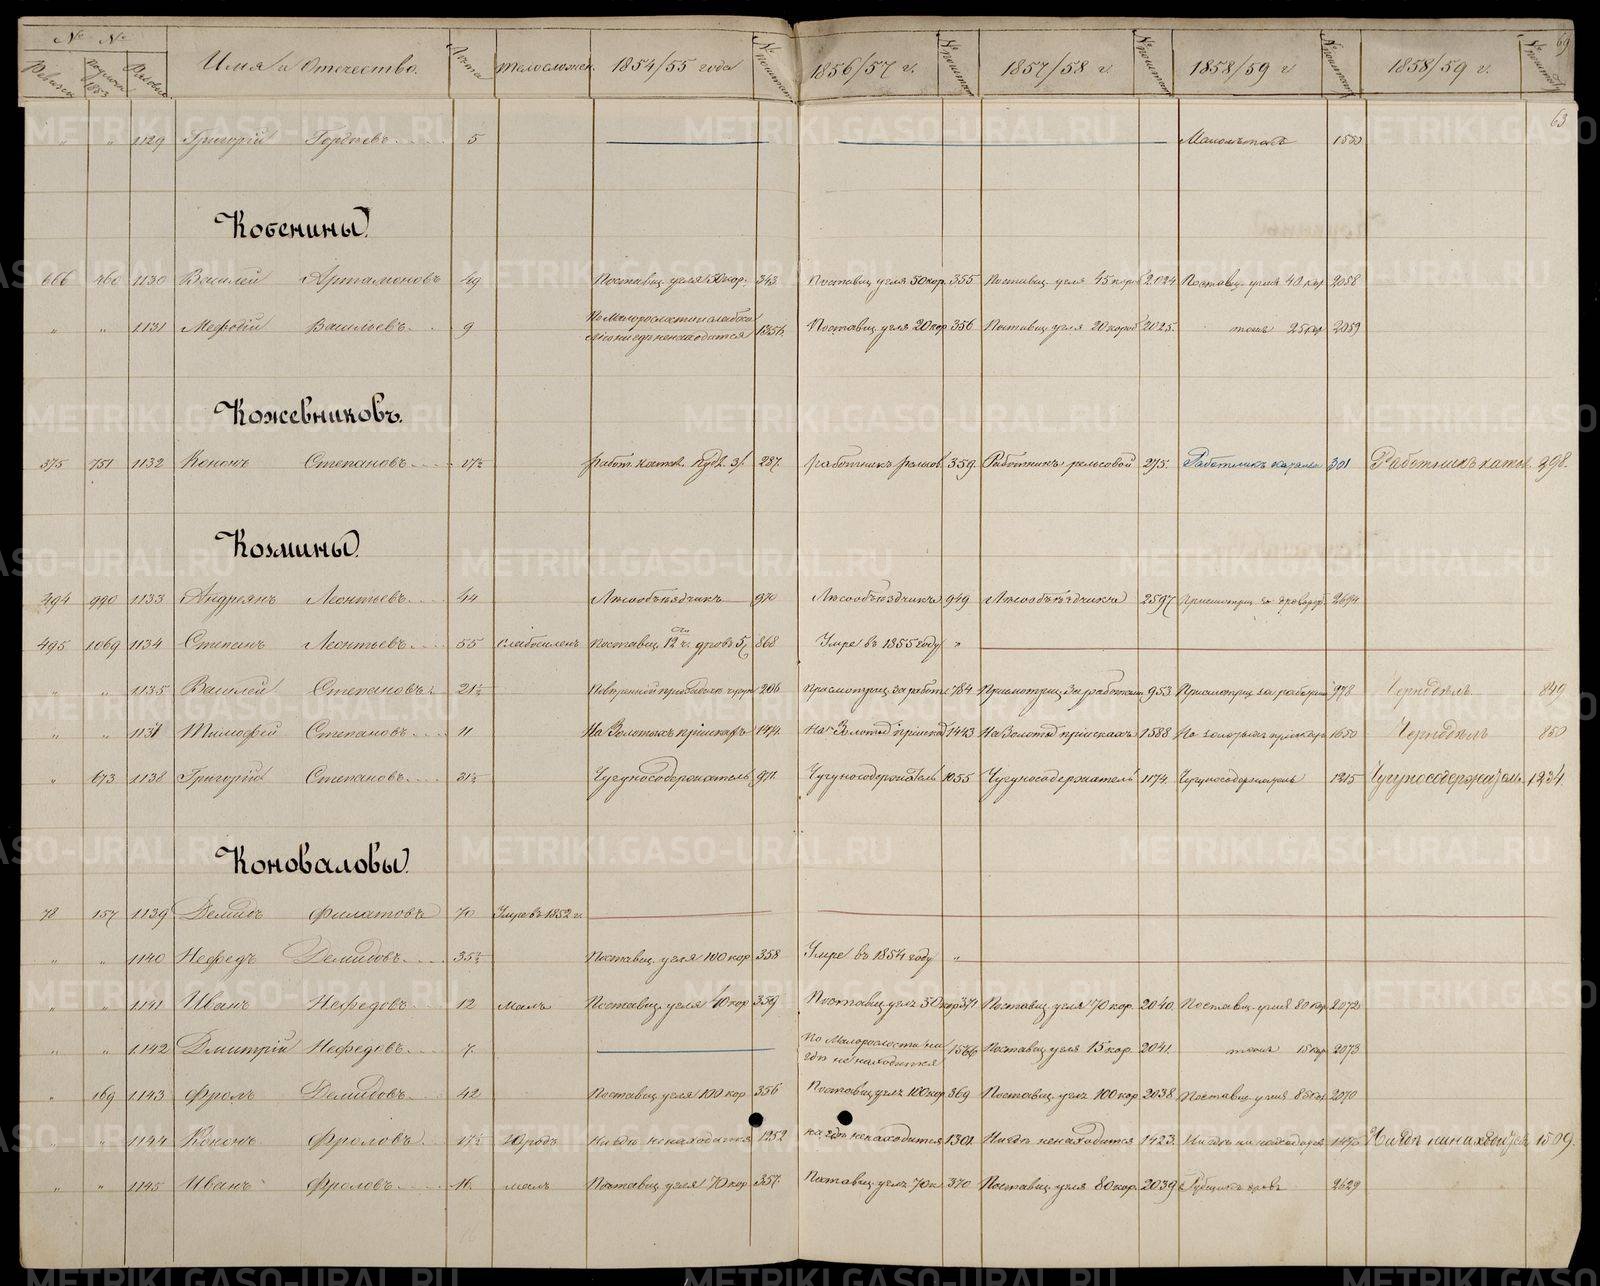 № № Имя и Отчество. Лета Телосложен. 1854/55 года № поштат 1856/57 г. № поштат 1857/58 г. № поштат 1858/59 г № поштат 1858/59 г. № поштат 69
63
" " 1129 Григорій Гордѣевъ 5 1550
Кобенины.
666 460 1130 Василей Артамоновъ 49 Поставщ. угля 50 кор. 343 Поставщ угля 50 кор. 355 Поставщ. угля 45 кор 2024 Поставщ. угля 40 кор 2058
" " 1131 Мефодій Васильевъ 9 По Малорослости и слабо 1356 Поставщ. угля 20 кор 356 Поставщ угля 20 короб 2025. тоже 25 кор 2059
нигдѣ не находится
Кожевниковъ.
375 751 1132 Кононъ Степановъ 17½ 287. работникъ 359. Работникъ рельсовой 275. Работникъ 301 Работникъ 298.
Козмины.
494 990 1133 Андреянъ Леонтьевъ 44 Лѣсообъѣздчикъ 970 Лѣсообъѣздчикъ 949 Лѣсообъѣздчикъ 2597 Присмотрщ. за 2694
495 1069 1134 Степанъ Леонтьевъ 55 слабосиленъ Поставщ. 12 ч. дровъ 868 Умре въ 1855 году "
" " 1135 Василей Степановъ 21½ 206 Присмотрщ. за работ 784 Присмотрщ за работами 953 Присмотрщ за работ 978 Чернодѣлъ 849
" " 113 Тимофей Степановъ 11 На Золотыхъ пріискахъ 1474. На Золот пріиска 1443 На Золот пріискахъ 1588 На золотыхъ пріискахъ 1650 Чернодѣлъ 850
" 673 1138 Григорій Степановъ 31½ Чугуносодержатель 971. Чугуносодержатель 1055 Чугуносодержатель 1174 Чугуносодержатель 1215 Чугуносодержатель 1234.
Коноваловы.
78 157 1139 Демидъ Филатовъ 70 Умре въ 1852 г.
" " 1140 Нефедъ Демидовъ 35½ Поставщ. угля 100 кор 358 Умре въ 1854 году "
" " 1141 Иванъ Нефедовъ 12 малъ Поставщ угля 40 кор 359 Поставщ угля 50 кор 371 Поставщ угля 70 кор. 2040. Поставщ. угля 80 кор 2072
" " 1142 Дмитрій Нефедовъ 7. По Малорослости ни 1566 Поставщ угля 15 кор. 2041. тоже 15 кор 2073
гдѣ не находится
" 169 1143 Фролъ Демидовъ 42 Поставщ угля 100 кор 356 Поставщ угля 100 кор 369 Поставщ. угля 100 кор 2038 Поставщ. угля 85 кор 2070
" " 1144 Кононъ Фроловъ 17½ Юродъ Нигдѣ не находится 1252 нигдѣ не находится 1301. Нигдѣ ненаходится 1423. Нигдѣ не находится 1476 Нигдѣ 1509.
" " 1145 Иванъ Фроловъ 16. малъ Поставщ угля 70 кор 357. Поставщ угля 70 к 370 Поставщ угля 80 кор. 2039 Рубщикъ дровъ 2629
METRIKI.GASO-URAL.RU